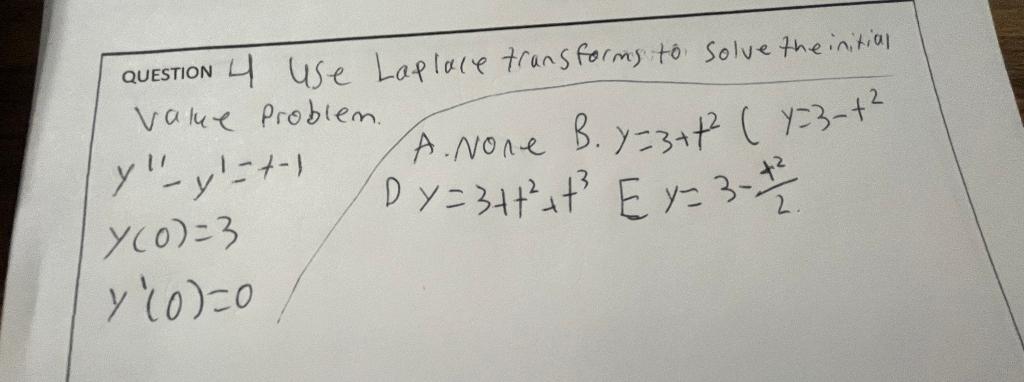 QUESTION 4 Use Laplace transforms to solve the initial
value Problem.
y''-y'=t-1
y(0)=3
y'(0)=0
A. NONE B. y=3+t² C y=3-t²
D y=3+t²+t³ E y=3-t²/2.